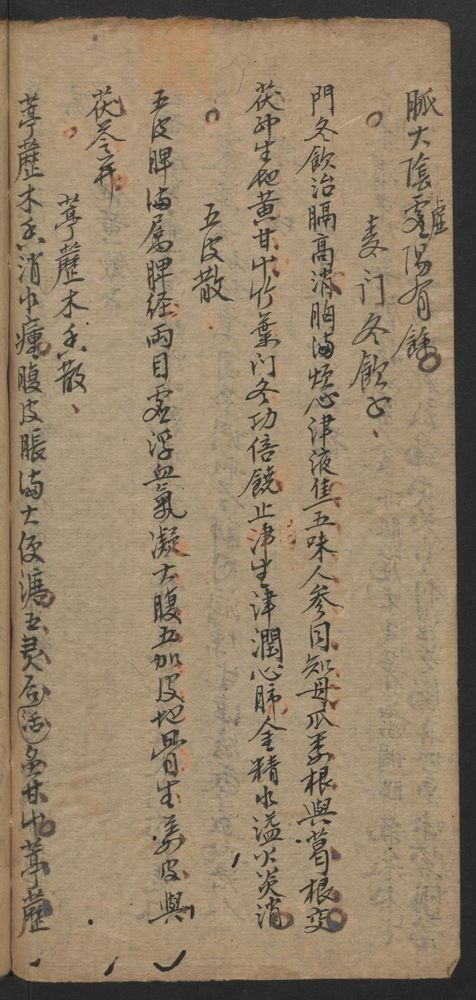 脈大陰虛陽有餘
麦门冬飲子
門冬飲治膈高消胸满烦心津液焦五味人参同知母瓜蒌根與葛根交
茯神生地黄甘艸竹葉门冬功倍饒止津生津潤心肺金精水溢火炎消
五皮散
五皮脾满屬脾経兩目虚浮血氣凝大腹五加皮地骨生姜皮與
茯苓并
葶藶木香散
葶藶木香消中腹皮脹满大便五灵石活甘葶藶